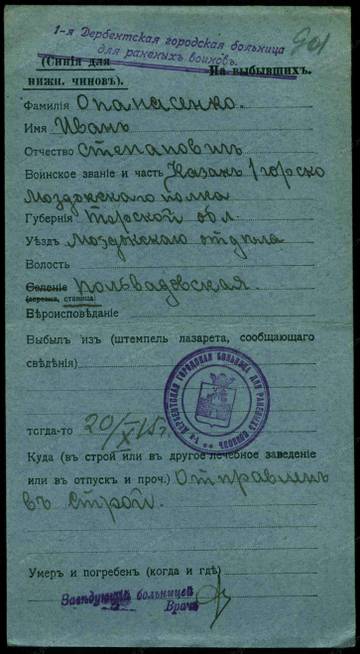 1-я Дербентская городская больница
для раненыхъ воиновъ.
901
(Синія для
нижн. чиновъ).
На выбывшихъ.
Фамилія Опанасенко.
Имя Иванъ
Отчество Степановичъ
Воинское званіе и часть Казакъ 1 Горско
Моздокскаго полка
Губернія Терской обл.
Уѣздъ Моздокскаго отдѣла
Волость
Селеніе
(деревня, станица)
Вѣроисповѣданіе
Выбылъ изъ (штемпель лазарета, сообщающаго
свѣдѣнія)
1-я ДЕРБЕНТСКАЯ ГОРОДСКАЯ БОЛЬНИЦА ДЛЯ РАНЕНЫХЪ ВОИНОВЪ
тогда-то 20/X 15 г.
Куда (въ строй или въ другое лечебное заведеніе
или въ отпускъ и проч.) Отправленъ
въ строй.
Умеръ и погребенъ (когда и гдѣ)
Завѣдующій больницей
Врачъ